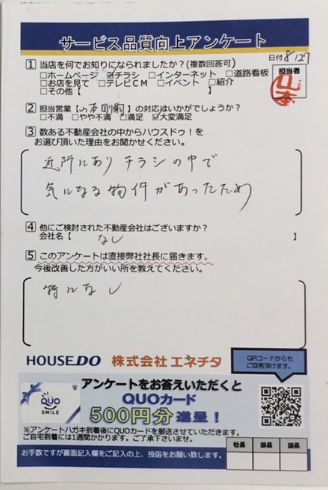 サービス品質向上アンケート
日付 8/27
担当者
山本
1 当店を何でお知りになられましたか?(複数回答可)
□ホームページ ☑チラシ □インターネット □道路看板
□お店を見て □テレビCM □イベント □紹介
□その他【 】
2 担当営業【山本 剛嗣】の対応はいかがでしょうか?
□不満 □やや不満 □満足 ☑大変満足
3 数ある不動産会社の中からハウスドゥ!を
お選び頂いた理由をお聞かせください。
近所にありチラシの中で
気になる物件があったため
4 他にご検討された不動産会社はございますか?
会社名【 なし 】
5 このアンケートは直接弊社社長に届きます。
今後改善した方がいい所を教えてください。
特になし
HOUSE DO 株式会社 エネチタ
QRコードからも
ご回答頂けます。
QUO
SMILE
アンケートをお答えいただくと
QUOカード
500円分進呈!
※アンケートハガキ到着後にQUOカードを郵送させていただきます。
ご自宅到着には1週間かかります。ご了承下さいませ。
社長 部長 店長
お手数ですが裏面記入欄をご記入の上、投函をお願い致します。